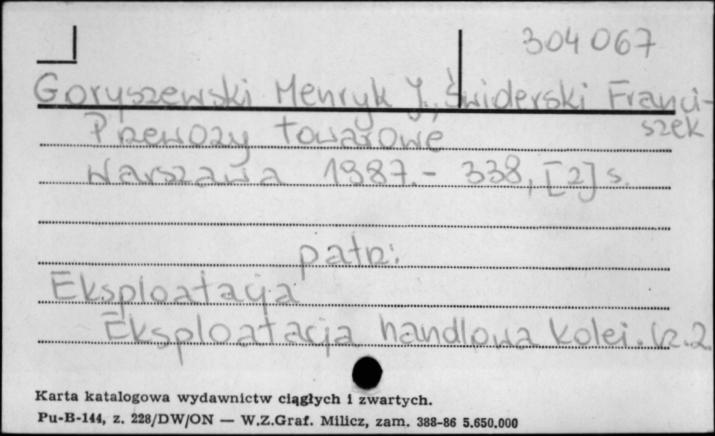 304 067
Goryszewski Henryk J., Świderski Franci-
szek
Przewozy towarowe
Warszawa 1987.- 338, [2] s.
patrz:
Eksploatacja
Eksploatacja handlowa kolei. Cz.2
Karta katalogowa wydawnictw ciągłych i zwartych.
Pu-B-144, z. 228/DW/ON — W.Z.Graf. Milicz, zam. 388-86 5.650.000